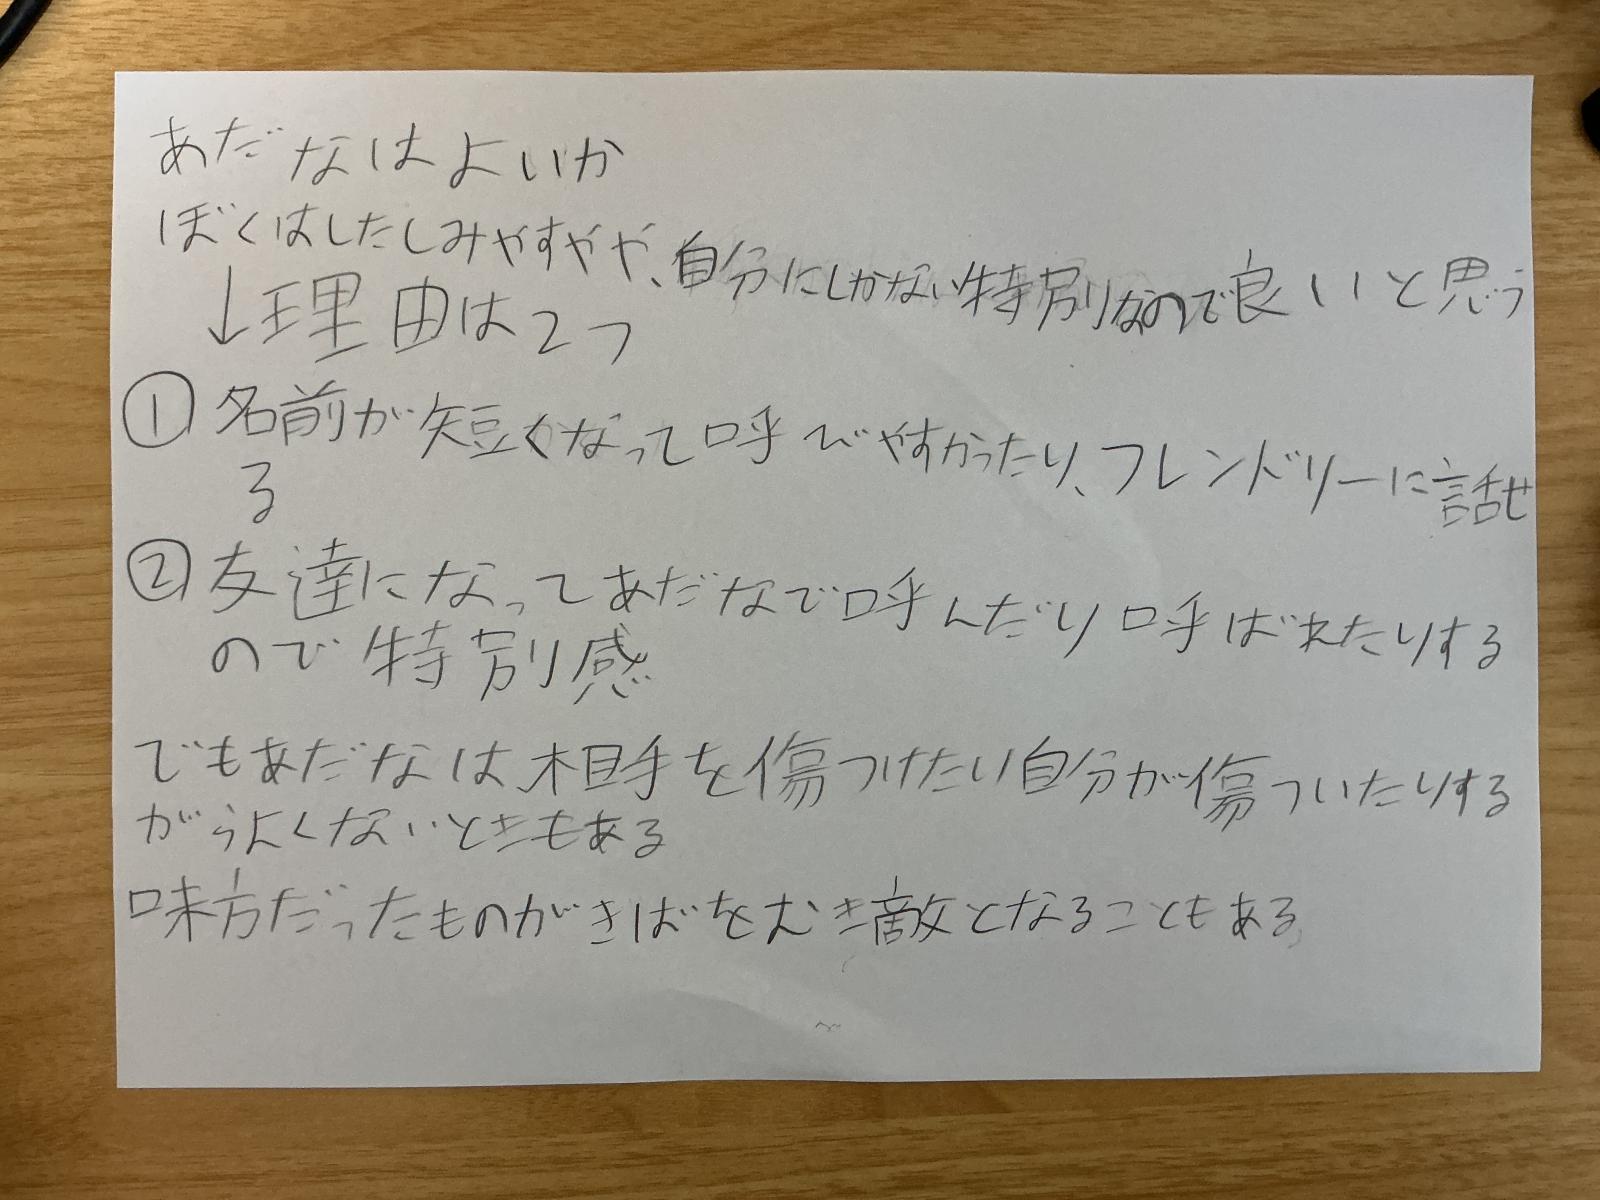 あだなはよいか
ぼくはしたしみやすやや、自分にしかない特別なので良いと思う
↓理由は2つ
① 名前が短くなって呼びやすかったり、フレンドリーに話せ
る
② 友達になってあだなで呼んだり呼ばれたりする
ので特別感
でもあだなは、相手を傷つけたい自分が傷ついたりする
がらよくないときもある
味方だったものがきばをむき敵となることもある